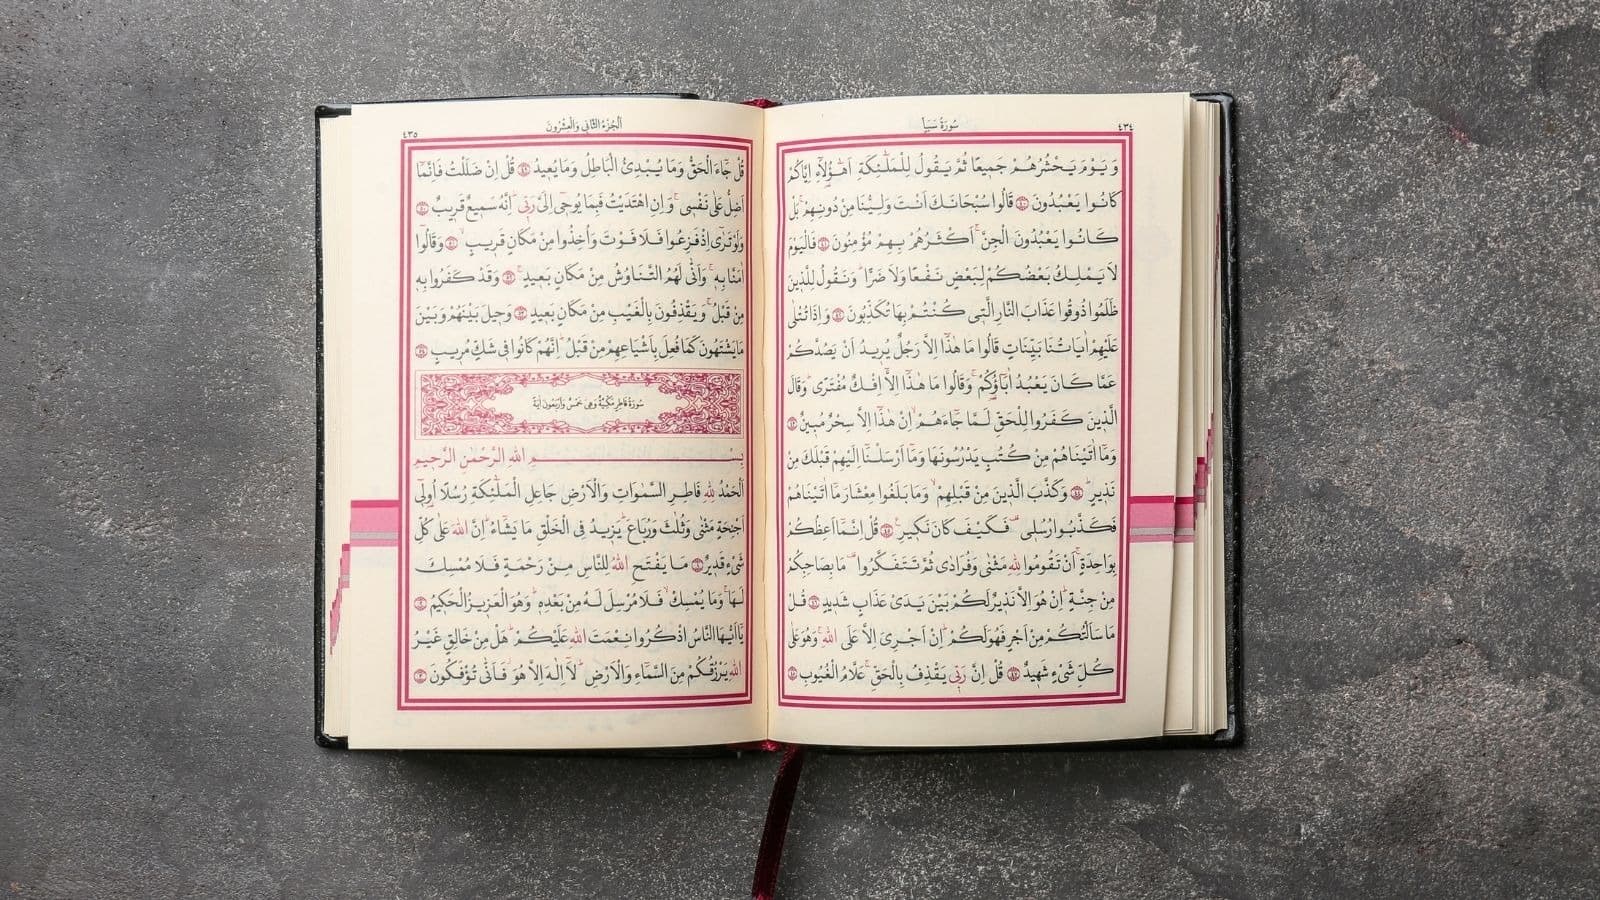 سُورَةُ سَبَإٍ
٤٣٤
وَيَوْمَ يَحْشُرُهُمْ جَمِيعًا ثُمَّ يَقُولُ لِلْمَلٰٓئِكَةِ اَهٰٓؤُ۬لَٓاءِ اِيَّاكُمْ
كَانُوا يَعْبُدُونَ ﴿٤٠﴾ قَالُوا سُبْحَانَكَ اَنْتَ وَلِيُّنَا مِنْ دُونِهِمْۚ بَلْ
كَانُوا يَعْبُدُونَ الْجِنَّۚ اَكْثَرُهُمْ بِهِمْ مُؤْمِنُونَ ﴿٤١﴾ فَالْيَوْمَ
لَا يَمْلِكُ بَعْضُكُمْ لِبَعْضٍ نَفْعًا وَلَا ضَرًّاۜ وَنَقُولُ لِلَّذِينَ
ظَلَمُوا ذُوقُوا عَذَابَ النَّارِ الَّتِي كُنْتُمْ بِهَا تُكَذِّبُونَ ﴿٤٢﴾ وَاِذَا تُتْلٰى
عَلَيْهِمْ اٰيَاتُنَا بَيِّنَاتٍ قَالُوا مَا هٰذَٓا اِلَّا رَجُلٌ يُرِيدُ اَنْ يَصُدَّكُمْ
عَمَّا كَانَ يَعْبُدُ اٰبَٓاؤُ۬كُمْۚ وَقَالُوا مَا هٰذَٓا اِلَّٓا اِفْكٌ مُفْتَرًىۜ وَقَالَ
الَّذِينَ كَفَرُوا لِلْحَقِّ لَمَّا جَٓاءَهُمْۙ اِنْ هٰذَٓا اِلَّا سِحْرٌ مُبِينٌ ﴿٤٣﴾
وَمَٓا اٰتَيْنَاهُمْ مِنْ كُتُبٍ يَدْرُسُونَهَا وَمَٓا اَرْسَلْنَٓا اِلَيْهِمْ قَبْلَكَ مِنْ
نَذِيرٍۜ ﴿٤٤﴾ وَكَذَّبَ الَّذِينَ مِنْ قَبْلِهِمْۙ وَمَا بَلَغُوا مِعْشَارَ مَٓا اٰتَيْنَاهُمْ
فَكَذَّبُوا رُسُلِي۠ فَكَيْفَ كَانَ نَكِيرِ۟ ﴿٤٥﴾ قُلْ اِنَّمَٓا اَعِظُكُمْ
بِوَاحِدَةٍۚ اَنْ تَقُومُوا لِلّٰهِ مَثْنٰى وَفُرَادٰى ثُمَّ تَتَفَكَّرُوا۠ مَا بِصَاحِبِكُمْ
مِنْ جِنَّةٍۜ اِنْ هُوَ اِلَّا نَذِيرٌ لَكُمْ بَيْنَ يَدَيْ عَذَابٍ شَدِيدٍ ﴿٤٦﴾ قُلْ
مَا سَاَلْتُكُمْ مِنْ اَجْرٍ فَهُوَ لَكُمْۜ اِنْ اَجْرِيَ اِلَّا عَلَى اللّٰهِۚ وَهُوَ عَلٰى
كُلِّ شَيْءٍ شَهِيدٌ ﴿٤٧﴾ قُلْ اِنَّ رَبِّي يَقْذِفُ بِالْحَقِّۚ عَلَّامُ الْغُيُوبِ ﴿٤٨﴾
اَلْجُزْءُ الثَّانِي وَالْعِشْرُونَ
٤٣٥
قُلْ جَٓاءَ الْحَقُّ وَمَا يُبْدِئُ الْبَاطِلُ وَمَا يُعِيدُ ﴿٤٩﴾ قُلْ اِنْ ضَلَلْتُ فَاِنَّمَٓا
اَضِلُّ عَلٰى نَفْسِيۚ وَاِنِ اهْتَدَيْتُ فَبِمَا يُوحٰٓي اِلَيَّ رَبِّيۜ اِنَّهُ سَمِيعٌ قَرِيبٌ ﴿٥٠﴾
وَلَوْ تَرٰٓى اِذْ فَزِعُوا فَلَا فَوْتَ وَاُخِذُوا مِنْ مَكَانٍ قَرِيبٍۙ ﴿٥١﴾ وَقَالُٓوا
اٰمَنَّا بِهِۚ وَاَنّٰى لَهُمُ التَّنَاوُشُ مِنْ مَكَانٍ بَعِيدٍۚ ﴿٥٢﴾ وَقَدْ كَفَرُوا بِهِ
مِنْ قَبْلُۚ وَيَقْذِفُونَ بِالْغَيْبِ مِنْ مَكَانٍ بَعِيدٍ ﴿٥٣﴾ وَحِيلَ بَيْنَهُمْ وَبَيْنَ
مَا يَشْتَهُونَ كَمَا فُعِلَ بِاَشْيَاعِهِمْ مِنْ قَبْلُۜ اِنَّهُمْ كَانُوا فِي شَكٍّ مُرِيبٍ ﴿٥٤﴾
سُورَةُ فَاطِرٍ مَكِّيَّةٌ وَهِيَ خَمْسٌ وَاَرْبَعُونَ اٰيَةً
بِسْمِ اللّٰهِ الرَّحْمٰنِ الرَّحِيمِ
اَلْحَمْدُ لِلّٰهِ فَاطِرِ السَّمٰوَاتِ وَالْاَرْضِ جَاعِلِ الْمَلٰٓئِكَةِ رُسُلًا اُو۬لِٓي
اَجْنِحَةٍ مَثْنٰى وَثُلٰثَ وَرُبَاعَۜ يَزِيدُ فِي الْخَلْقِ مَا يَشَٓاءُۜ اِنَّ اللّٰهَ عَلٰى كُلِّ
شَيْءٍ قَدِيرٌ ﴿١﴾ مَا يَفْتَحِ اللّٰهُ لِلنَّاسِ مِنْ رَحْمَةٍ فَلَا مُمْسِكَ
لَهَاۚ وَمَا يُمْسِكْۙ فَلَا مُرْسِلَ لَهُ مِنْ بَعْدِهِۜ وَهُوَ الْعَزِيزُ الْحَكِيمُ ﴿٢﴾
يَٓا اَيُّهَا النَّاسُ اذْكُرُوا نِعْمَتَ اللّٰهِ عَلَيْكُمْۜ هَلْ مِنْ خَالِقٍ غَيْرُ
اللّٰهِ يَرْزُقُكُمْ مِنَ السَّمَٓاءِ وَالْاَرْضِۜ لَٓا اِلٰهَ اِلَّا هُوَۘ فَاَنّٰى تُؤْفَكُونَ ﴿٣﴾